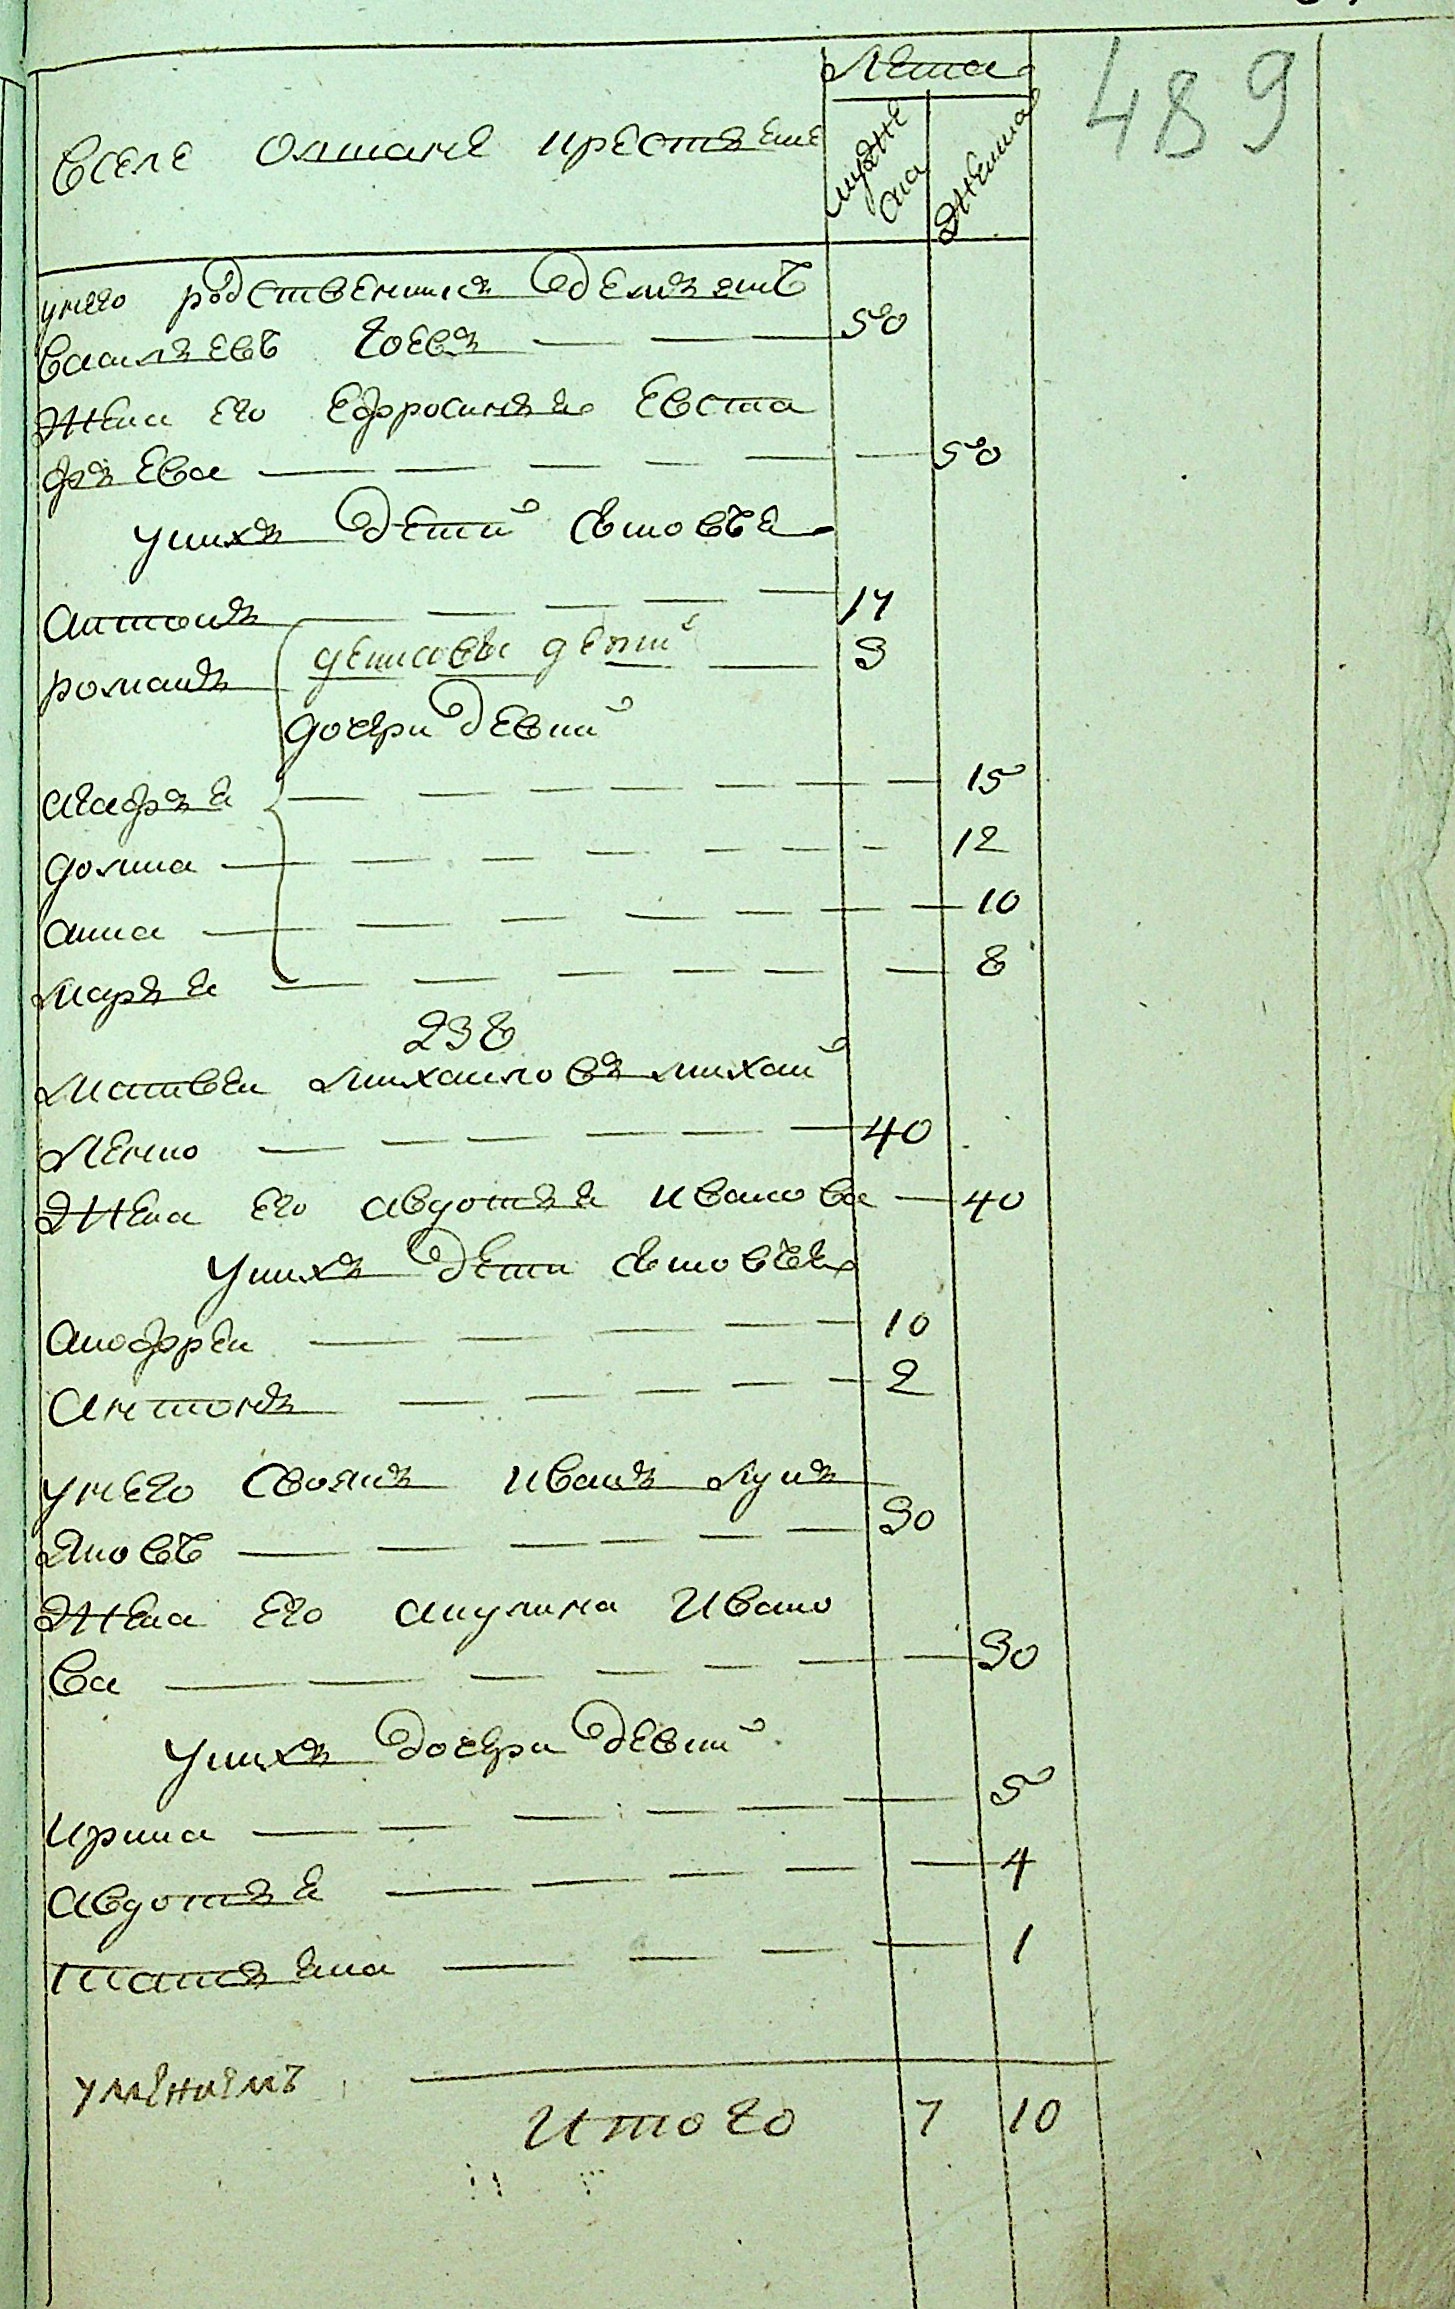 Лета
489
Вселе Олшане крестьяне
мужеска
Женска
унего родственникъ Демянъ
Васильевъ Гоевъ 50
Жена его Ефросинья Евста
фьева 50
унихъ детй сыновья
антонъ 17
романъ денисовы детй 3
дочери девкй
агафья 15
домна 12
анна 10
марья 8
238
Матвеи михаиловъ михаи
ленко 40
Жена его авдотья иванова 40
унихъ дети сыновья
анофреи 10
антонъ 2
унего своякъ иванъ лукь
яновъ 30
Жена его акулина ивано
ва 30
унихъ дочери девкй
ирина 5
авдотья 4
татьяна 1
итого 7 10